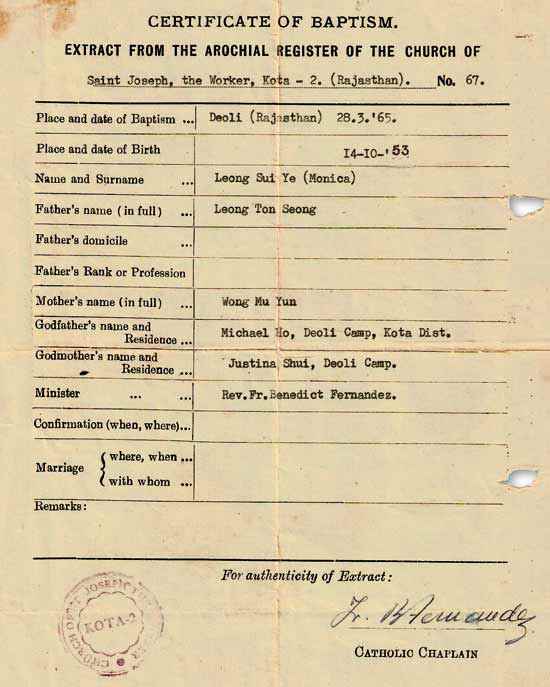 CERTIFICATE OF BAPTISM.
EXTRACT FROM THE AROCHIAL REGISTER OF THE CHURCH OF
Saint Joseph, the Worker, Kota - 2. (Rajasthan). No. 67.
Place and date of Baptism ... Deoli (Rajasthan) 28.3.'65.
Place and date of Birth 14-10-'53
Name and Surname ... Leong Sui Ye (Monica)
Father's name (in full) ... Leong Ton Seong
Father's domicile ...
Father's Rank or Profession
Mother's name (in full) ... Wong Mu Yun
Godfather's name and
Residence ... Michael Ho, Deoli Camp, Kota Dist.
Godmother's name and
Residence ... Justina Shui, Deoli Camp.
Minister ... ... Rev.Fr.Benedict Fernandez.
Confirmation (when, where)...
Marriage { where, when ...
with whom ...
Remarks:
For authenticity of Extract:
Fr. B Fernandez
CATHOLIC CHAPLAIN
CHURCH OF ST. JOSEPH THE
KOTA-2